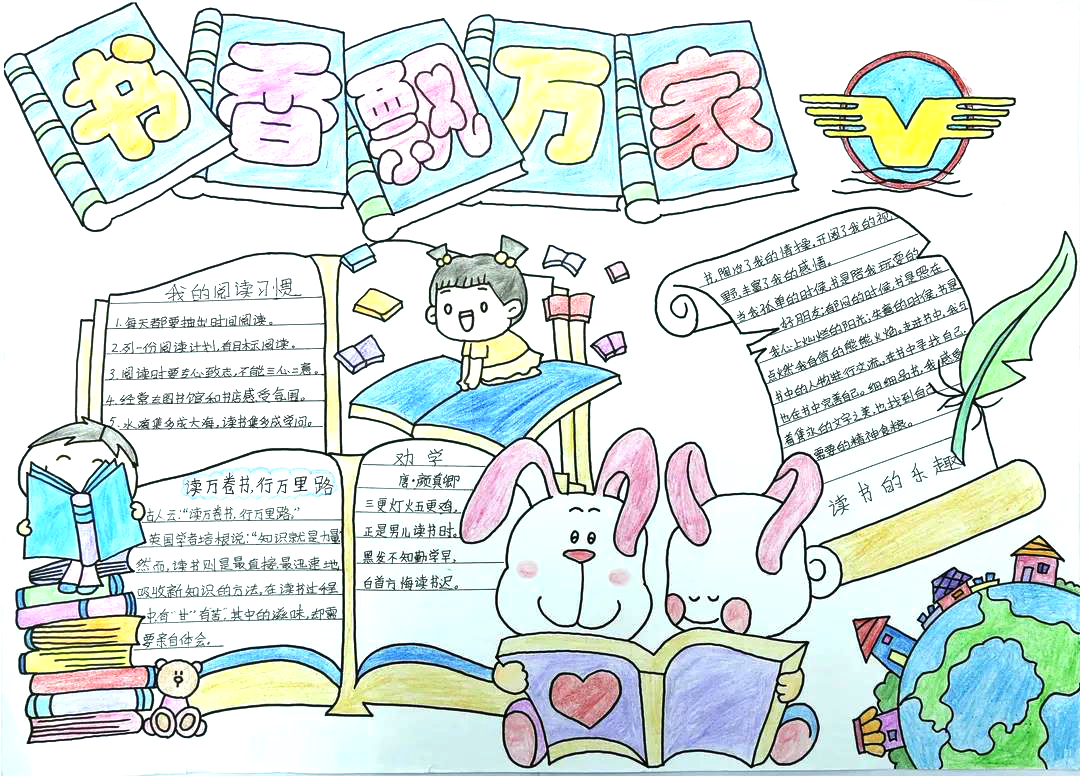 书香飘万家
我的阅读习惯
1.每天都要抽出时间阅读。
2.列一份阅读计划,有目标阅读。
3.阅读时要专心致志,不能三心二意。
4.经常去图书馆和书店感受氛围。
5.水滴集多成大海,读书集多成学问。
读万卷书,行万里路
古人云:“读万卷书,行万里路。”
英国学者培根说:“知识就是力量
然而,读书则是最直接最迅速地
吸收新知识的方法,在读书过程
中有“甘”有苦,其中的滋味,却需
要亲自体会。
劝学
唐·颜真卿
三更灯火五更鸡,
正是男儿读书时。
黑发不知勤学早,
白首方悔读书迟。
书,陶冶了我的情操,开阔了我的视
野,丰富了我的感情。
当我孤单的时候,书是陪我玩耍的
好朋友;郁闷的时候,书是照在
我心上灿烂的阳光;失意的时候,书是
点燃我自信的熊熊火焰。走进书中,我与
书中的人物进行交流。在书中寻找自己,
也在书中完善自己。细细品书,我感受
着隽永的文字之美,也找到自己
需要的精神食粮。
读书的乐趣